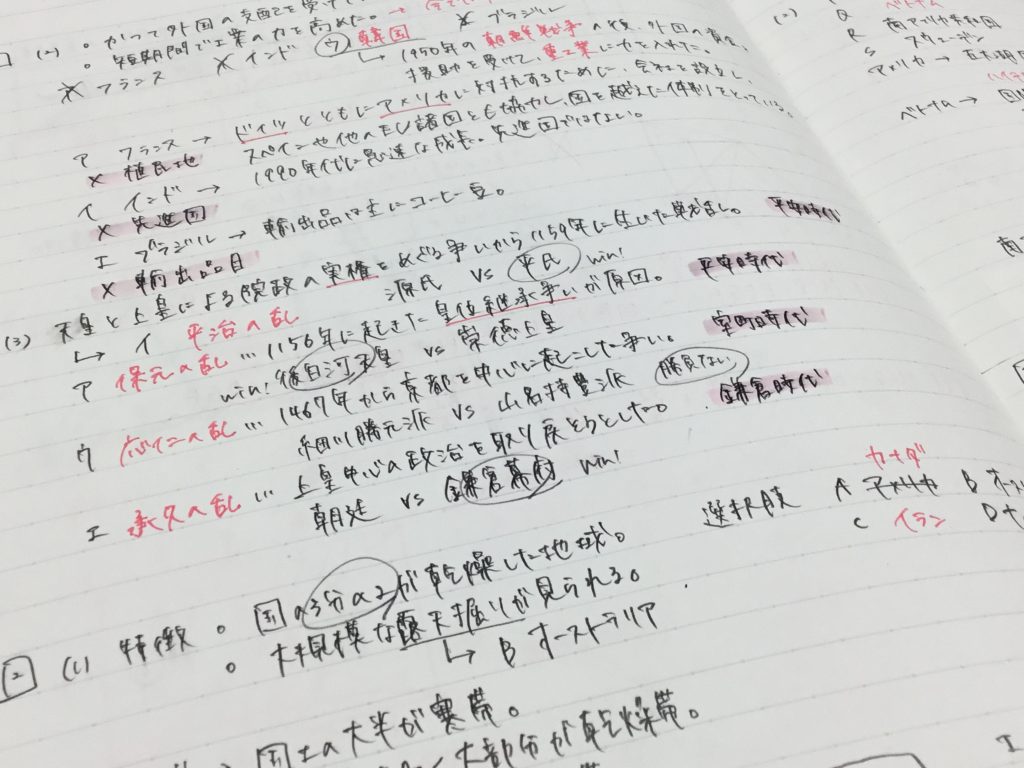 (2) 。かつて外国の支配を受けて
。短期間で工業の力を高めた。→
× フランス × インド ウ 韓国 × ブラジル
↳ 1950年の朝鮮戦争の後、外国の資金、
援助を受けて、重工業に力を入れた。
ア フランス → ドイツとともにアメリカに対抗するために、会社を設立し、
× 植民地 スペインや他のEU諸国とも協力し、国を越えた体制をとっている。
イ インド → 1990年代に急速な成長。先進国ではない。
× 先進国
エ ブラジル → 輸出品は主にコーヒー豆。
× 輸出品目
(3) 天皇と上皇による院政の実権をめぐる争いから1159年に生じた戦乱。 平安時代
↳ イ 平治の乱 源氏 vs 平氏 win!
ア 保元の乱 … 1156年に起きた皇位継承争いが原因。 平安時代
win! 後白河天皇 vs 崇徳上皇
ウ 応仁の乱 … 1467年から京都を中心に起こした争い。 室町時代
細川勝元派 vs 山名持豊派 勝負なし
エ 承久の乱 … 上皇中心の政治を取り戻そうとした。 鎌倉時代
朝廷 vs 鎌倉幕府 win!
選択肢 A アメリカ カナダ B オース
C イラン D
2 (1) 特徴 。国の3分の2が乾燥した地域。
。大規模な露天掘りが見られる。
↳ B オーストラリア
国土の大半が寒帯。
大部分が乾燥帯。
(2) Q ベトナム
R 南アフリカ共和国
S スウェーデン
アメリカ →
ベトナム →